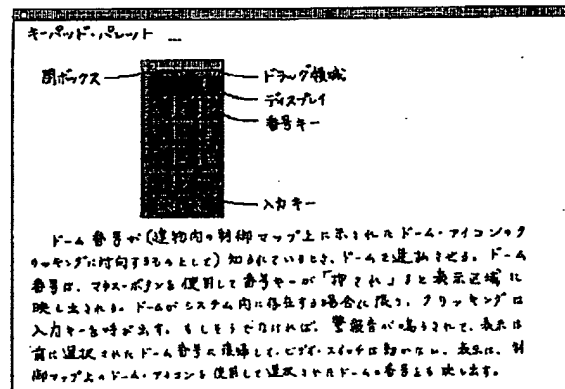 キーパッド・パレット ...
閉ボックス
ドラッグ領域
ディスプレイ
番号キー
入力キー
ドーム番号が(建物内の制御マップ上に示されたドーム・アイコンのク
リッキングに対向するものとして)知られているとき、ドームを選択させる。ドーム
番号は、マウス・ボタンを使用して番号キーが「押され」ると表示区域に
映し出される。ドームがシステム内に存在する場合に限り、クリッキングは
入力キーを呼び出す。もしそうでなければ、警報音が鳴らされて、表示は
前に選択されたドーム番号に復帰して、ビデオ・スイッチは動かない。表示は、制
御マップ上のドーム・アイコンを使用して選択されたドームの番号をも映し出す。